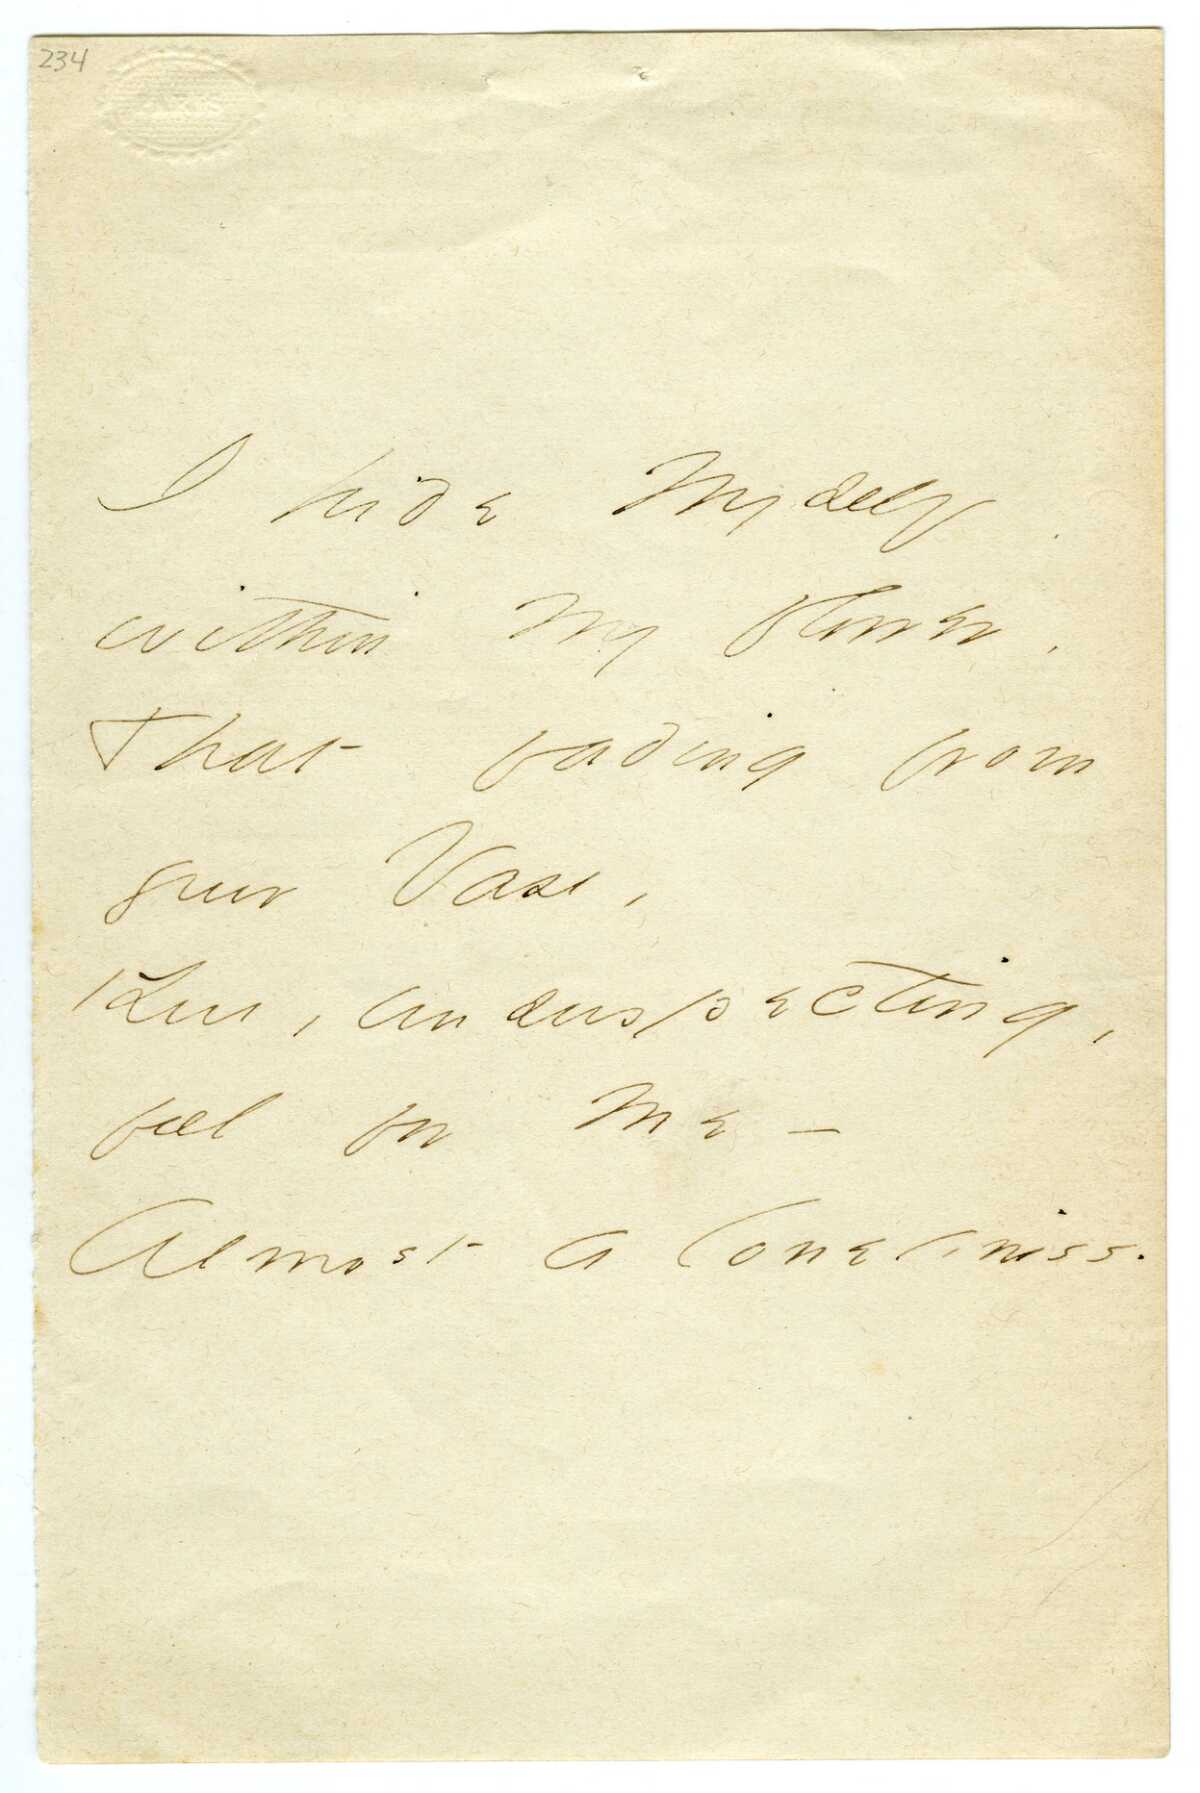 234
PARIS
I hide Myself
within my flower,
That fading from
your Vase,
You, unsuspecting,
feel for me –
Almost a loneliness.